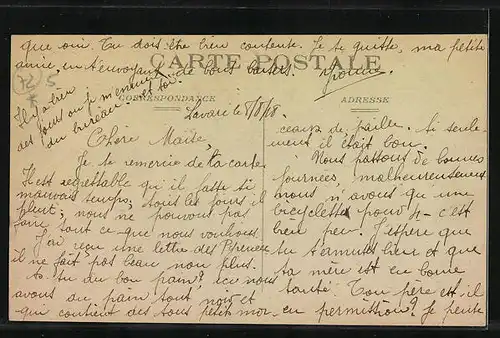 que oui. Tu dois être bien contente. Je te quitte, ma petite
amie, en t'envoyant de bons baisers. Yvonne.
CARTE POSTALE
CORRESPONDANCE
ADRESSE
Il y a bien
des jours où je m'ennuie
du bureau et toi.
Lavaré le 8/8/18.
Chère Maïte,
Je te remercie de ta carte.
Il est regrettable qu'il fasse si
mauvais temps; tous les jours il
pleut; nous ne pouvons pas
faire tout ce que nous voulions.
J'ai reçu une lettre des Pyrénées
il ne fait pas beau non plus.
As-tu du bon pain? ici nous
avons du pain tout noir et
qui contient des tous petits mor-
ceaux de paille. Si seule-
ment il était bon.
Nous passons de bonnes
journées, malheureusement
nous n'avons qu'une
bicyclette pour 4 - c'est
bien peu. J'espère que
tu t'amuses bien et que
ta mère est en bonne
santé. Ton père est-il
en permission? Je pense